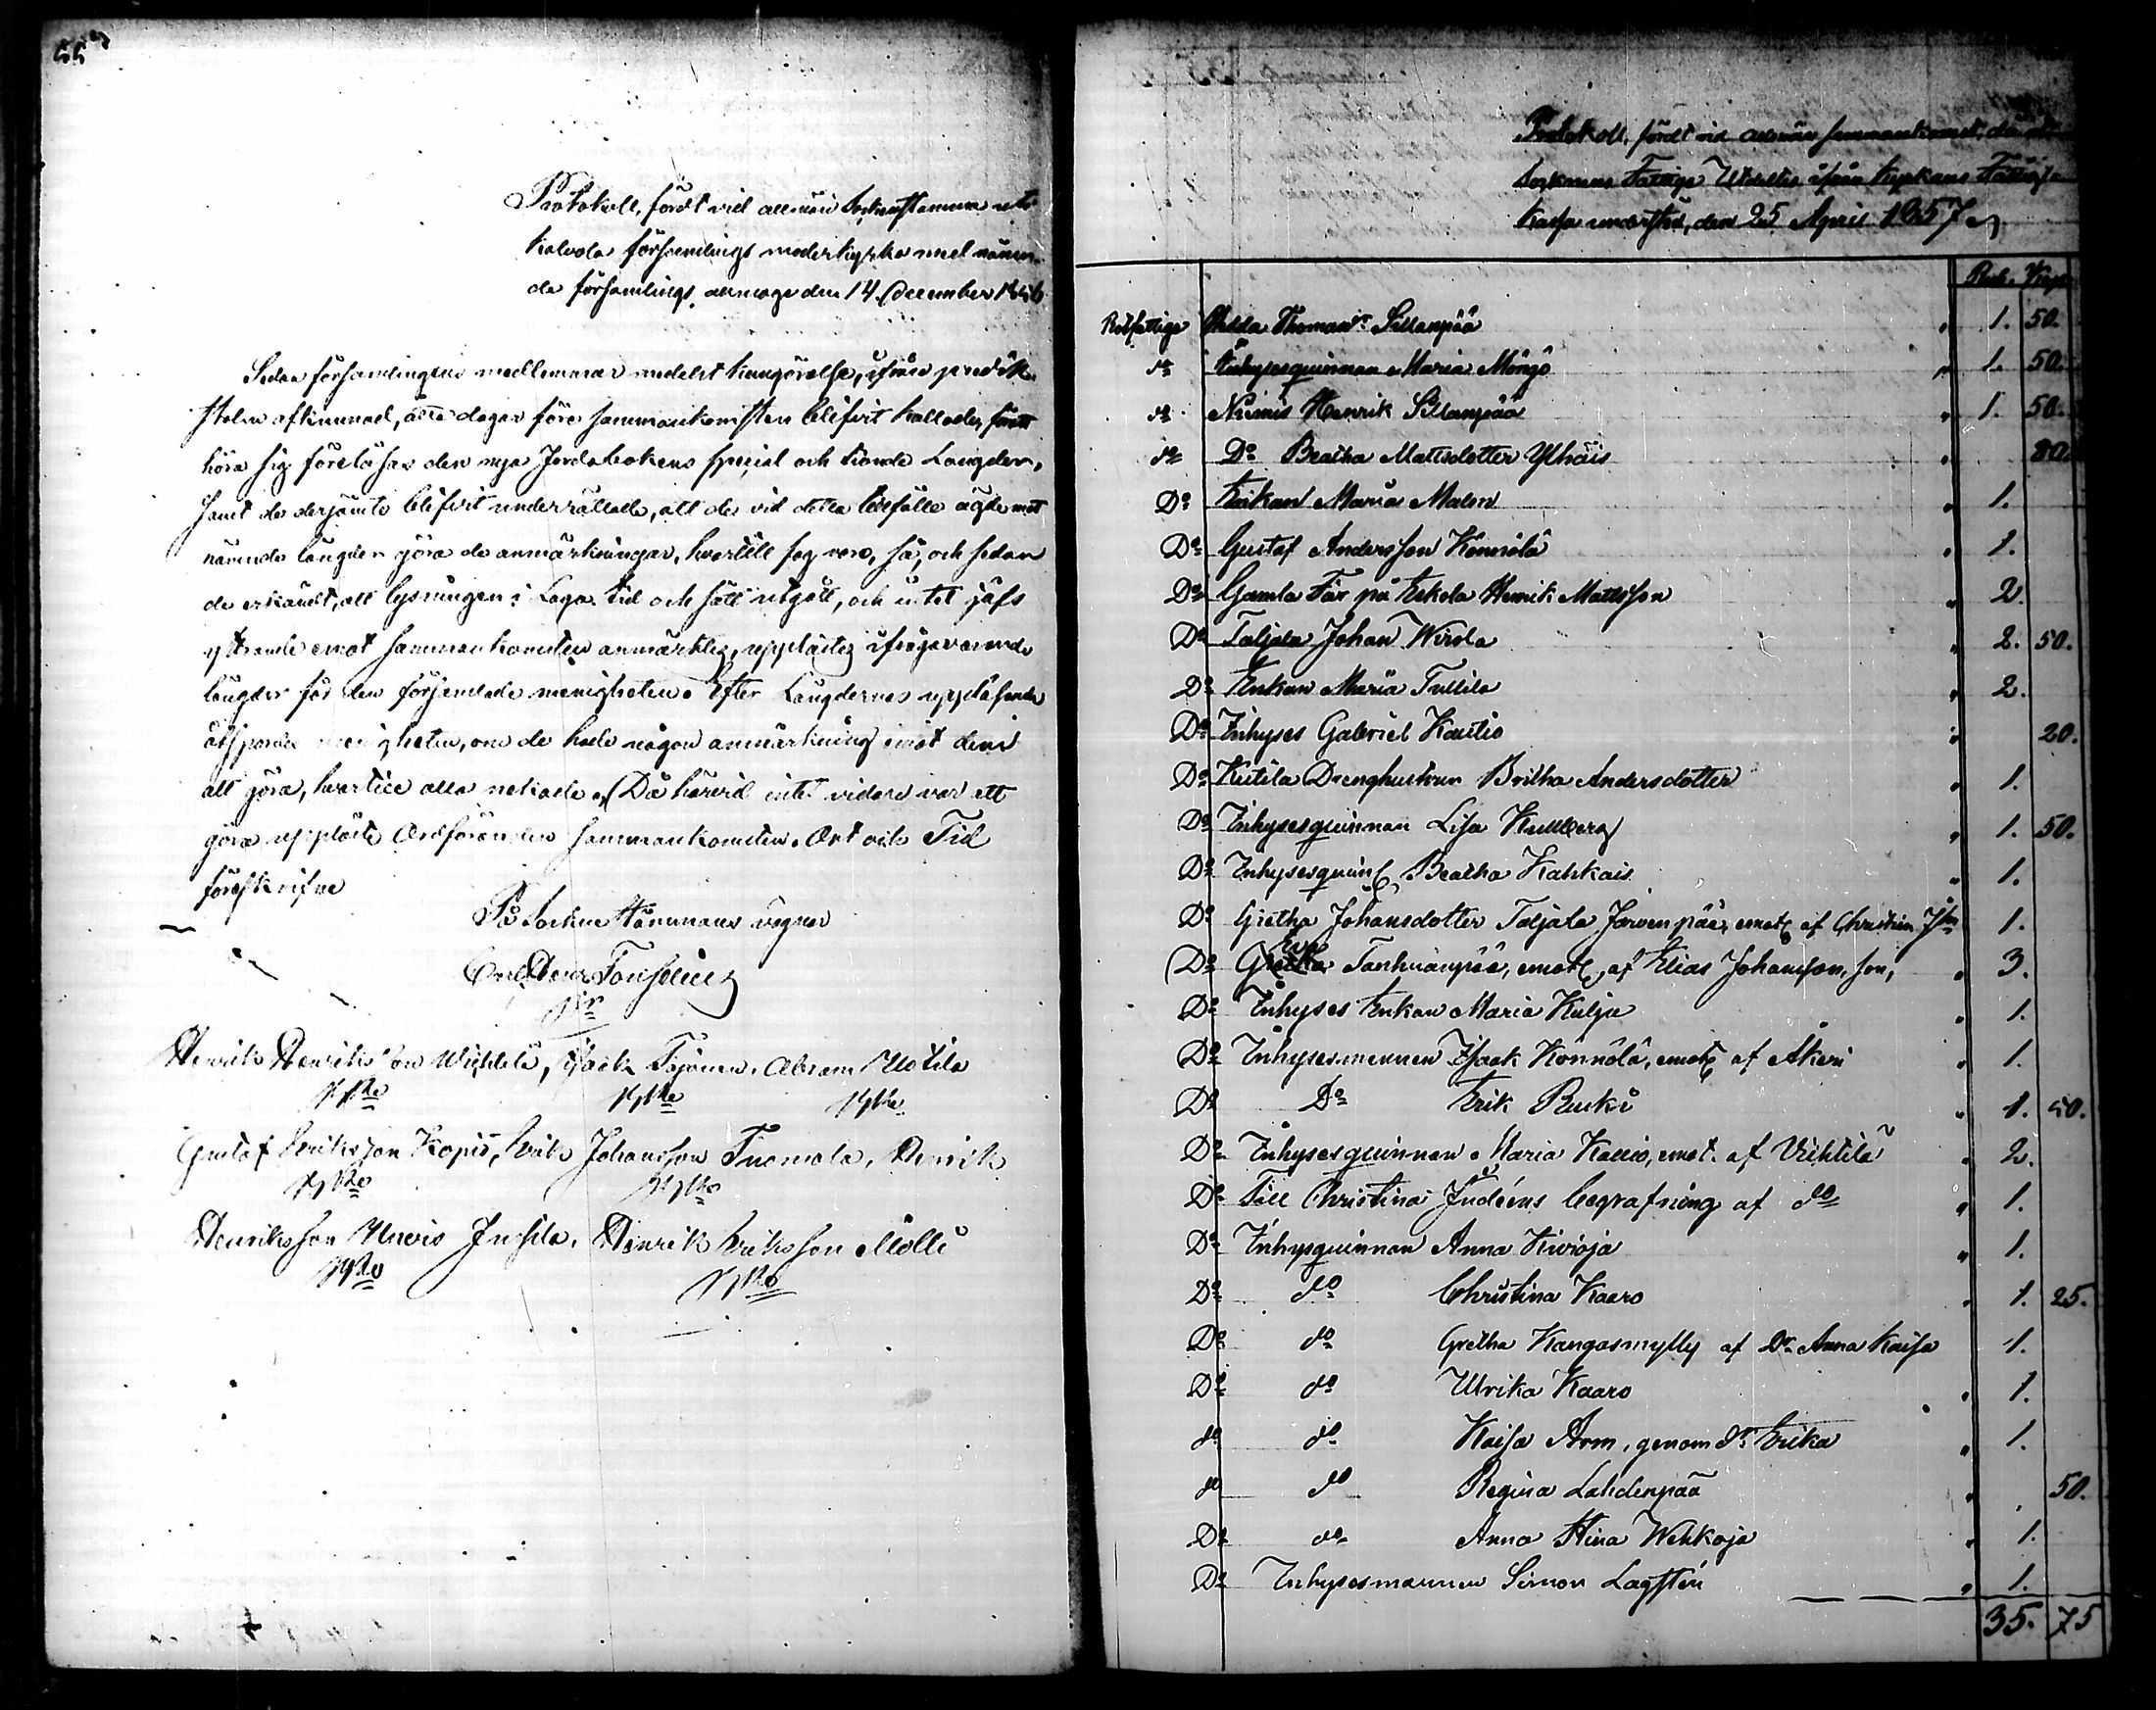 Protokoll, fördt vid allmän Sockenstämma uti
Kalvola församlings moderkyrka med nämn-
de församlings allmoge den 14 December 1856
Sedan församlingens medlemmar medelst kungörelse, ifrån predik-
stolen afkunnad, åtta dagar före sammankomsten blifvit kallade, för att
höra sig föreläsas den nya Jordabokens special och tionde Längder,
samt de derjämte blifvit underrättade, att de vid detta tillfälle ägde mot
nämnde längder göra de anmärkningar, hvartill sog vore, så, och sedan
de erkändt, att lysningen i Laga tid och sätt utgått, och intet jäfs
yttrande emot sammankomsten anmärktes, upplästes ifrågavarande
längder för den församlade menigheten. Efter Längdernes uppläsande
åtsporde menigheten, om de hade någon anmärkning emot dem
att göra, hvartill alla nekade. Då härvid intet vidare var att
göra upplöste Ordföranden sammankomsten. Ort och Tid
föreskrifne
På Sockne Stämmans vägnar
Henrik Henriksson Wichtilä, Isack Tojonen, Abram Uotila
Gustaf Eriksson Kopis, Erik Johansson Tuomola, Henrik
Henriksson Unois Jussila, Henrik Eriksson Mölli
Protokoll, fördt vid allmän sammankomst, då
Socknens Fattige Utdeltes ifrån Kyrkans Fattig
Kassa understöd, den 25 April 1857
Rub. Kop.
Rotfattige Hedda Thomasdr Sillanpää 1. 50.
do Inhysesquinnan Maria Möngö 1. 50.
do Niimis Henrik Sillanpää 1. 50.
do Do Beatha Mattsdotter Ylhäis 80.
Do Enkan Maria Malm 1.
Do Gustaf Andersson Könnölä 1.
Do Gamla Far på Eskola Henrik Mattsson 2.
Do Taljala Johan Wirola 2. 50.
Do Enkan Maria Tullila 2.
Do Inhyses Gabriel Kautio 20.
Do Kutila Drenghustrun Britha Andersdotter 1.
Do Inhysesquinnan Lisa Kullberg 1. 50.
Do Inhysesquin Beatha Kahkais 1.
Do Gretha Johansdotter Taljala Jarvenpää, emot af Christian 1.
Do Eva Tanhuanpää, emot af Elias Johansson, son, 3.
Do Inhyses Enkan Maria Kulju 1.
Do Inhysesmannen Isaak Könnölä, emot af Åkeri 1.
Do Do Erik Ruski 1. 50.
Do Inhysesquinnan Maria Kallio, emot. af Vichtilä 2.
Do Till Christina Judéns begrafning af do 1.
Do Inhysquinnan Anna Kivioja 1.
Do do Christina Kaaro 1. 25.
Do do Gretha Kangasmylly af Dr Anna Kaisa 1.
Do do Ulrika Kaaro 1.
do do Kaisa Arm, genom dr Erika 1.
do do Regina Lahdenpää 50.
Do do Anna Stina Wehkoja 1.
Do Inhysesmannen Simon Lagstén 1.
35. 75